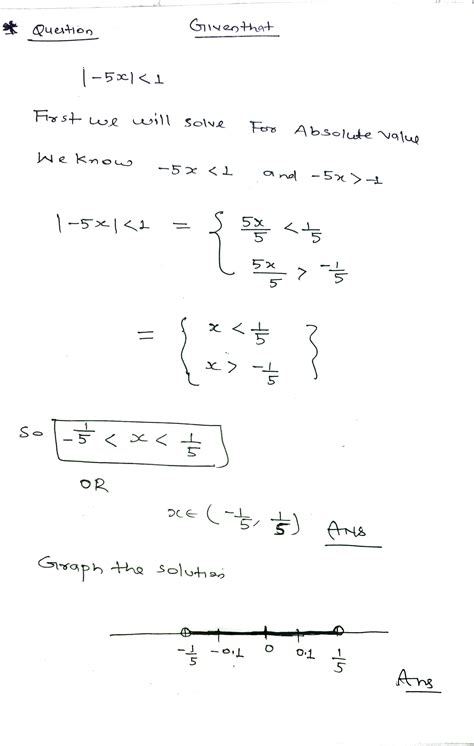 * Question Given that
|-5x|<1
First we will solve For Absolute value
We know -5x < 1 and -5x>-1
|-5x|<1 = { 5x/5 < 1/5
5x/5 > -1/5
= { x < 1/5
x > -1/5 }
So -1/5 < x < 1/5
OR
x∈ (-1/5, 1/5) Ans
Graph the solution
-1/5 -0.1 0 0.1 1/5
Ans